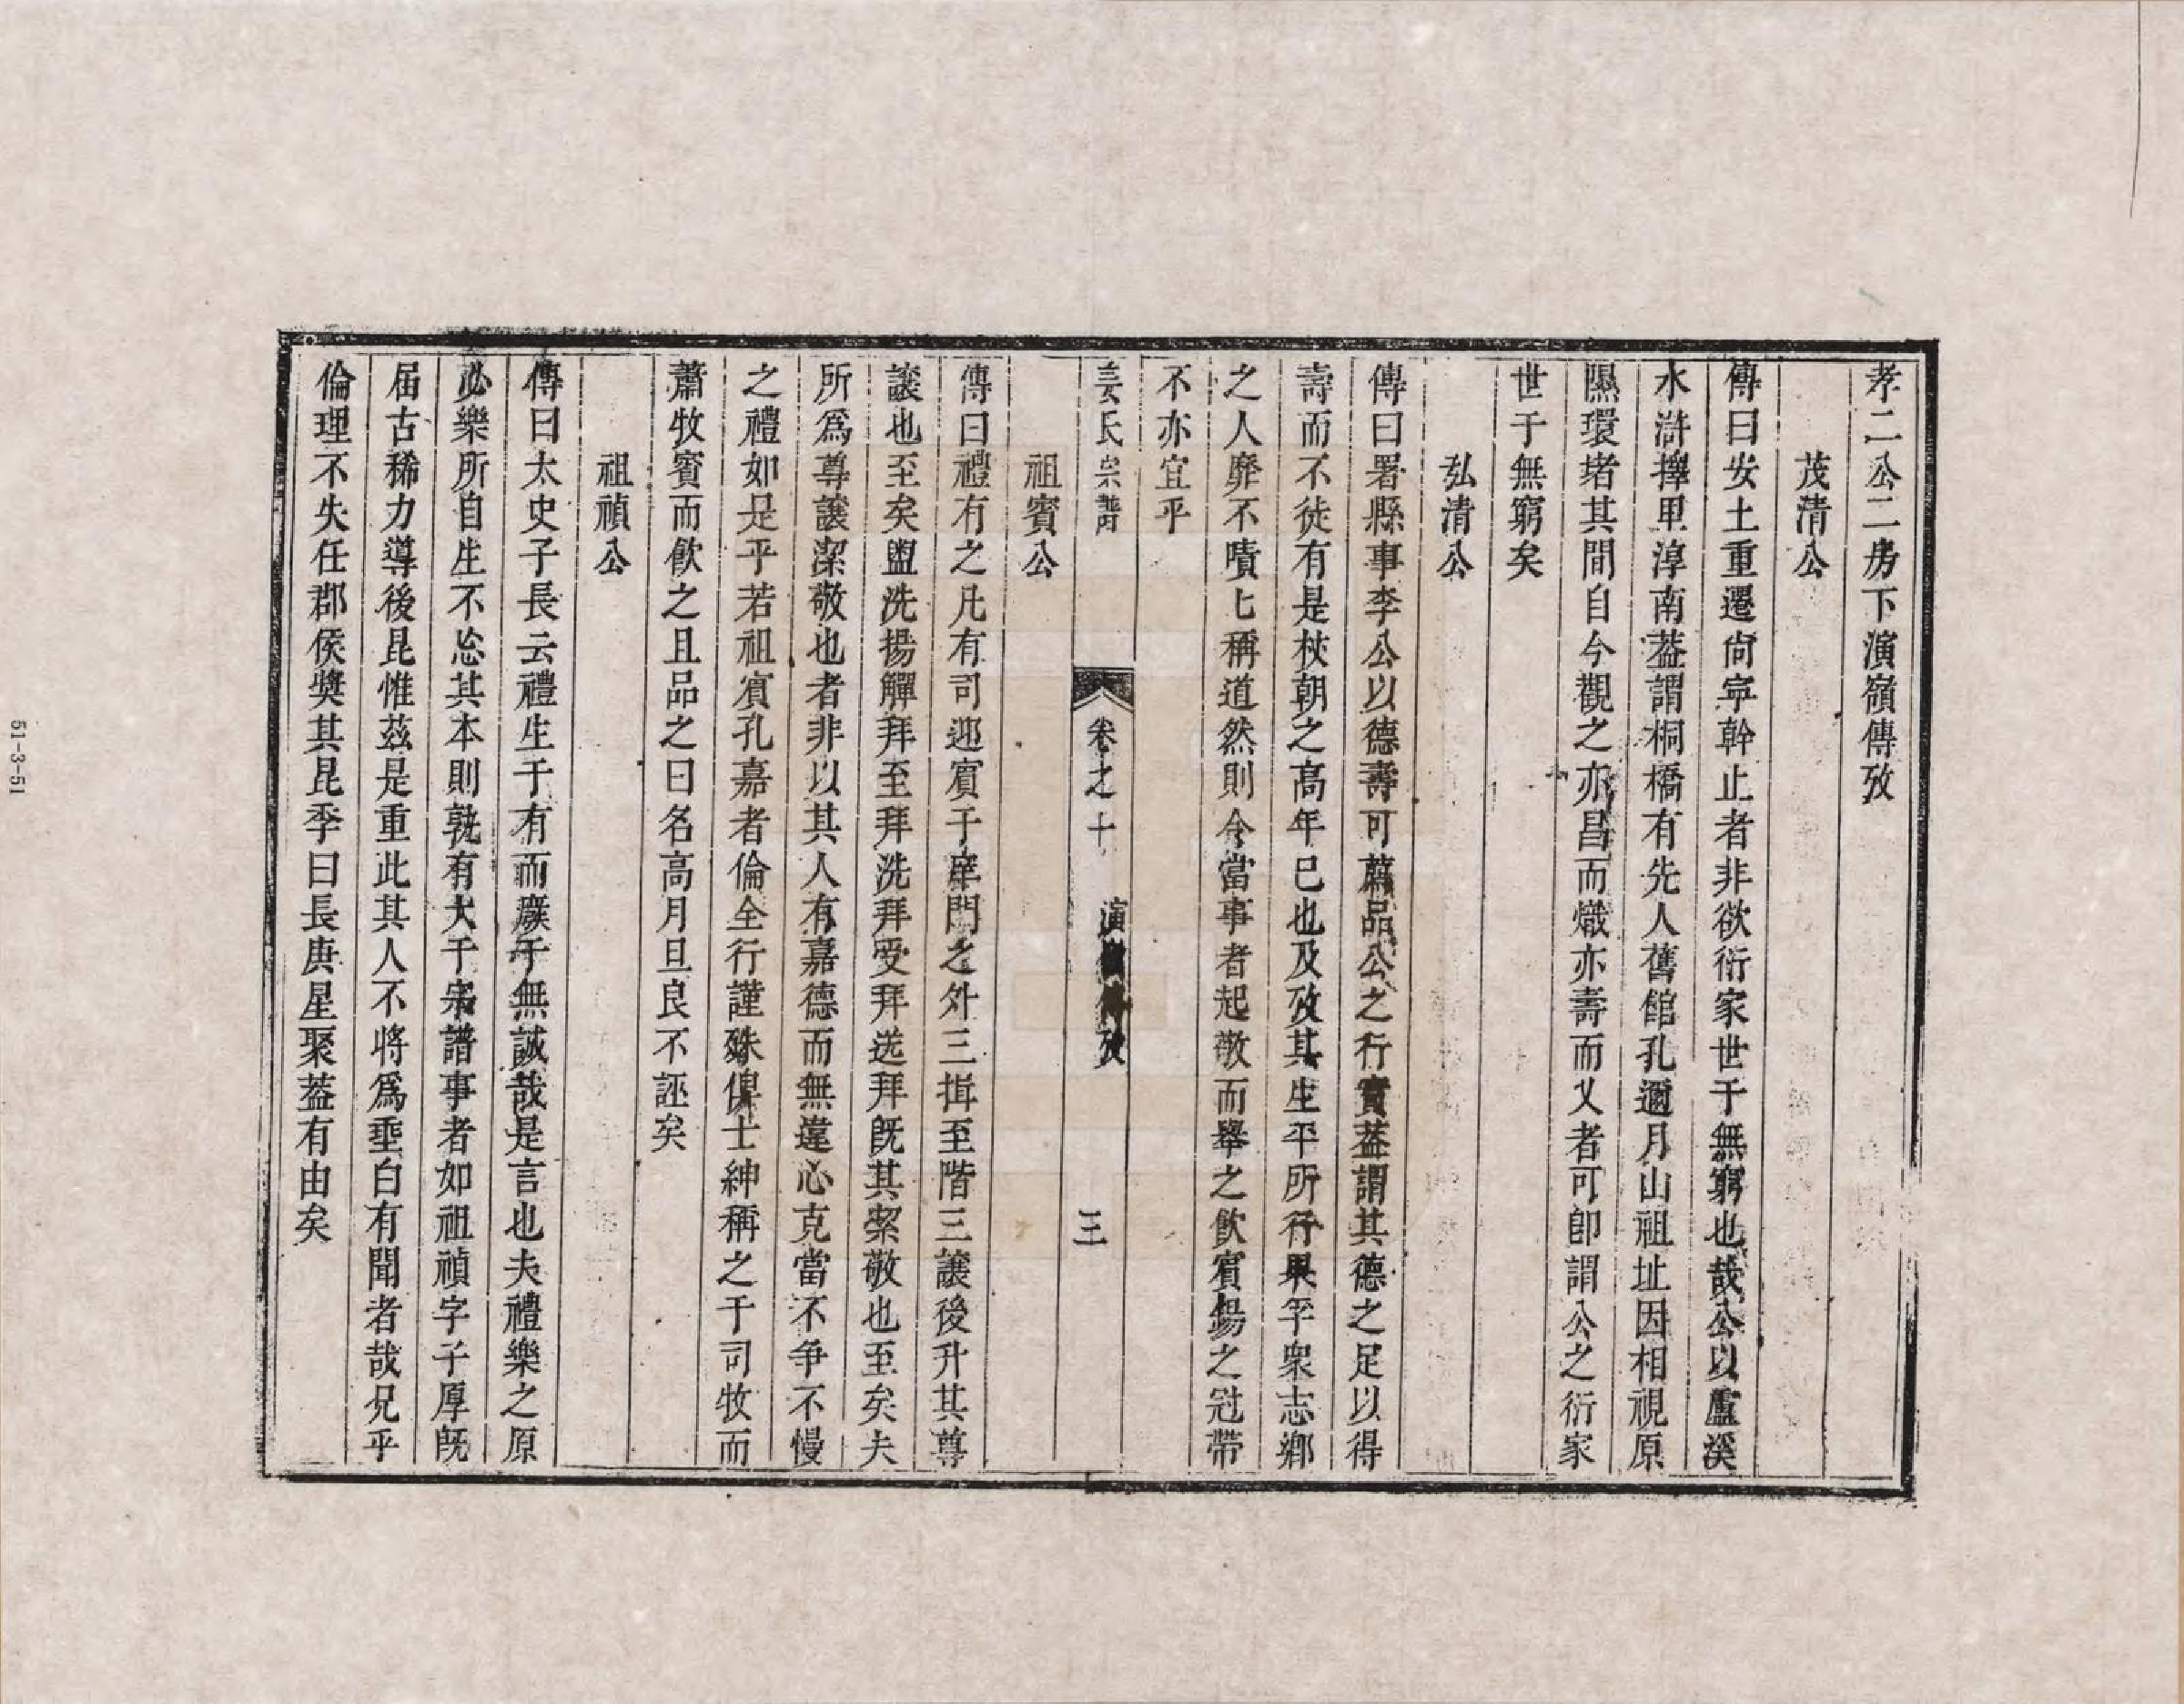 孝二公二房下演嶺傳攷
茂清公
傳曰安土重遷尙寜幹止者非欲衍家世于無窮也哉公以盧溪
水滸擇里淳南葢謂桐橋有先人舊館孔邇月山祖址因相視原
隰環堵其間自今觀之亦昌而熾亦壽而乂者可卽謂公之衍家
世于無窮矣
弘清公
傳曰署縣事李公以德壽可薦品公之行實葢謂其德之足以得
壽而不徒有是杖朝之高年已也及攷其生平所行果孚衆志鄕
之人靡不嘖匕稱道然則令當事者起敬而舉之飮賔揚之冠帶
不亦宜乎
姜氏宗譜 卷之十 演嶺傳攷 三
祖賓公
傳曰禮有之凡有司迎賔于庠門之外三揖至階三讓後升其尊
讓也至矣盥洗揚觶拜至拜洗拜受拜送拜旣其絜敬也至矣夫
所爲尊讓潔敬也者非以其人有嘉德而無違心克當不爭不慢
之禮如是乎若祖賔孔嘉者倫全行謹殊俾士紳稱之于司牧而
蕭牧賓而飮之且品之曰名高月旦良不誣矣
祖禎公
傳曰太史子長云禮生于有而廢于無誠哉是言也夫禮樂之原
必樂所自生不忩其本則孰有大于宗譜事者如祖禎字子厚旣
届古稀力導後昆惟茲是重此其人不將爲垂白有聞者哉况乎
倫理不失任郡侯獎其昆季曰長庚星聚葢有由矣
51-3-51